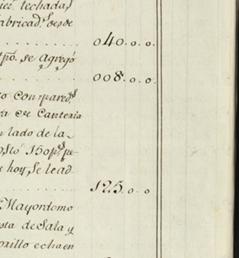 techada,
abricad.^s desde
040..o..o.
tpõ. se agregó
008..o..o.
con pared.^s
de Canteria
n lado de la
costó 150 p.^s pe
hoy, se lead
125..o..o
Mayordomo
sta de Sala y
echa en